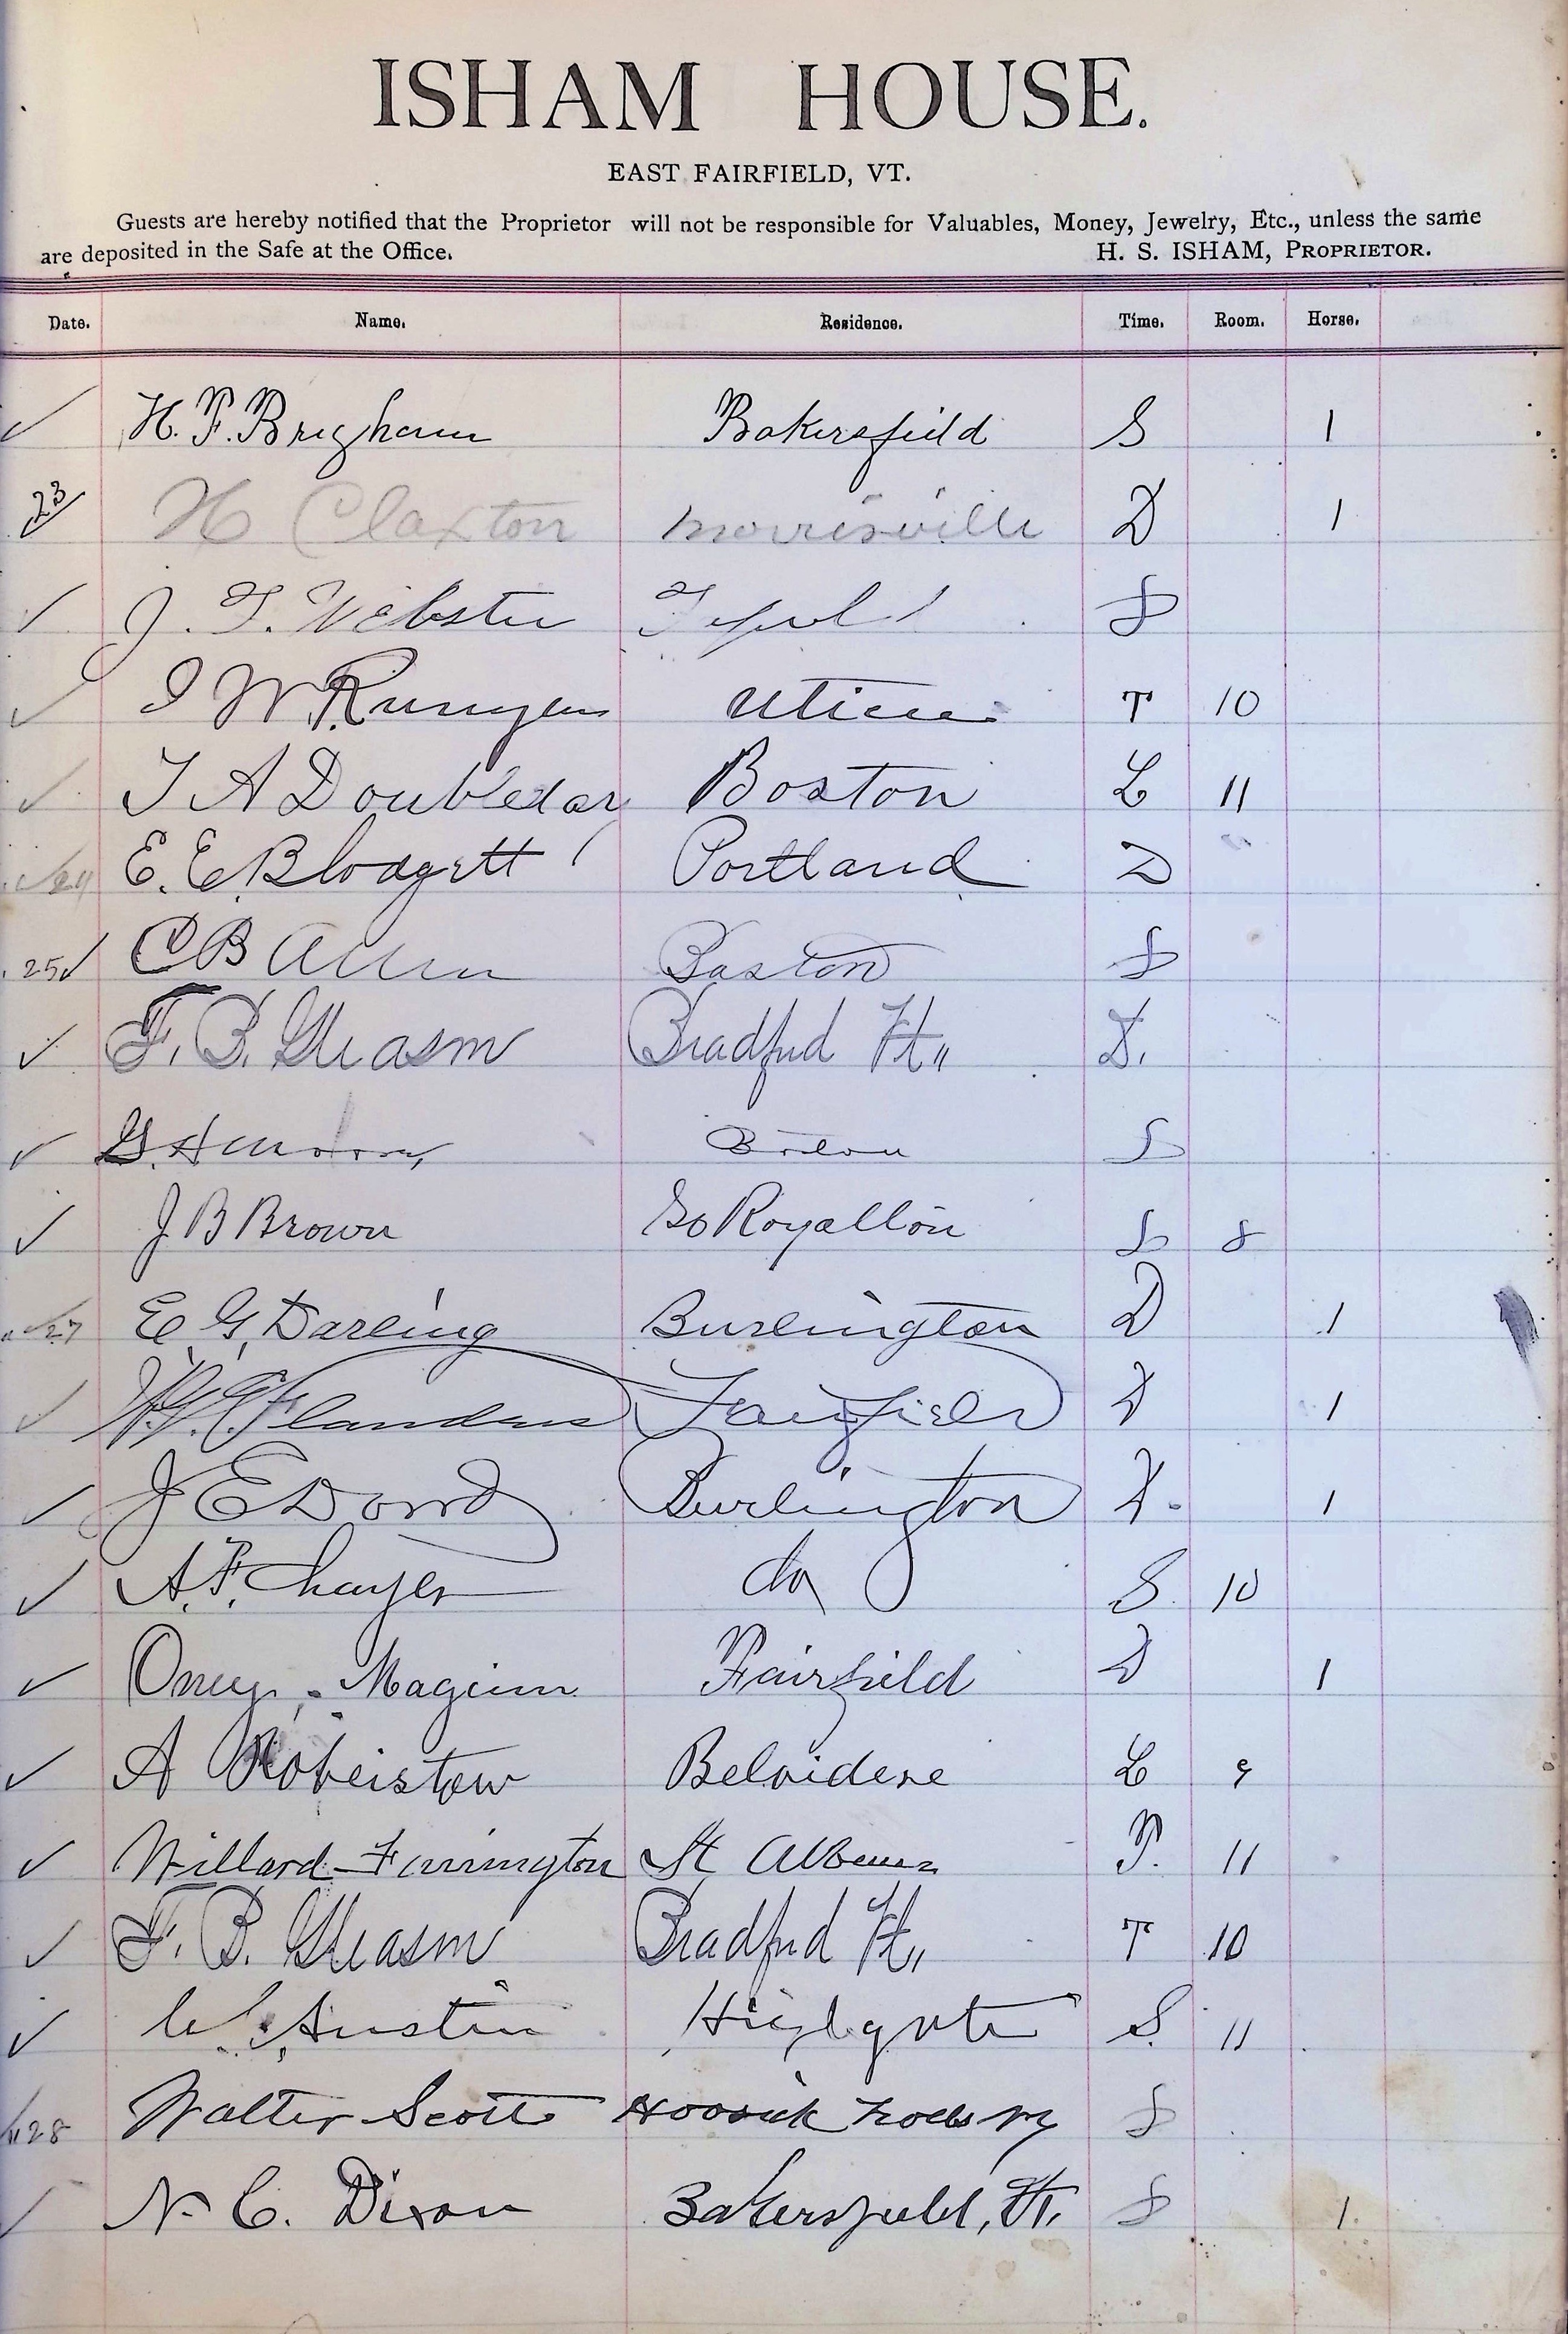 ISHAM HOUSE.
EAST FAIRFIELD, VT.
Guests are hereby notified that the Proprietor will not be responsible for Valuables, Money, Jewelry, Etc., unless the same
are deposited in the Safe at the Office. H. S. ISHAM, PROPRIETOR.
Date. Name. Residence. Time. Room. Horse.
✓ H. F. Brigham Bakersfield S 1
23 ✓ H Claxton Morrisville D 1
✓ J. T. Webster S
✓ I W. Runyan Utica T 10
✓ T A Doubleday Boston L 11
✓ 24 E. E. Blodgett Portland D
25 ✓ C B Allen Boston S
✓ F. B. Gleason Bradford Vt. D.
✓ G. H. Boston S
✓ J B Brown So Royalton S 8
✓ 27 E. G. Darling Burlington D 1
✓ Flanders Fairfield D 1
✓ J E Dowd Burlington D. 1
✓ A. F. do S 10
✓ Maginn Fairfield D 1
✓ A Belvidere L 9
✓ Willard Farrington St Albans T. 11
✓ F. B. Gleason Bradford Vt. T 10
✓ Austin Highgate S. 11
28 Walter Scott Hoosick Falls NY S
✓ N. C. Dixon Bakersfield, Vt. S 1